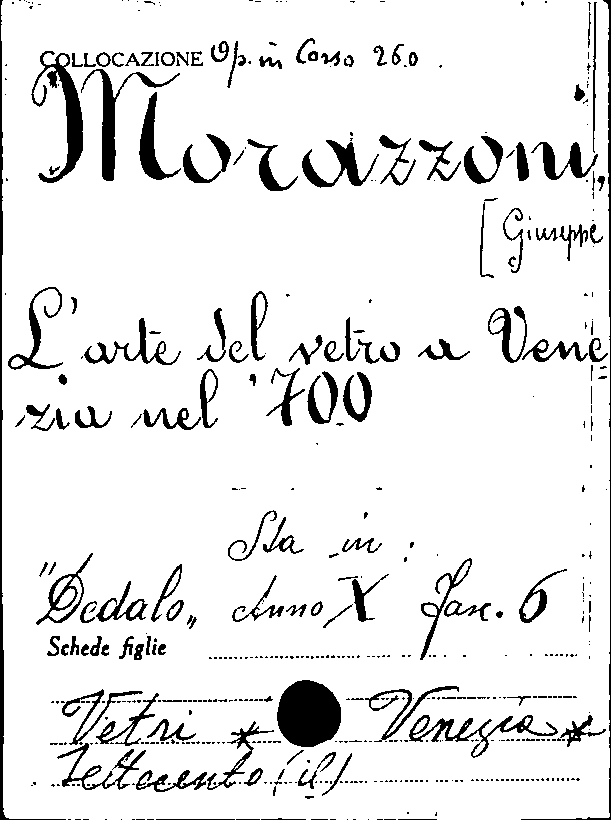 COLLOCAZIONE Op. in Corso 260.
Morazzoni,
[Giuseppe
L'arte del vetro a Vene=
zia nel '700
Sta in:
"Dedalo„ Anno X fasc. 6
Schede figlie
Vetri * Venezia *
Settecento (il)